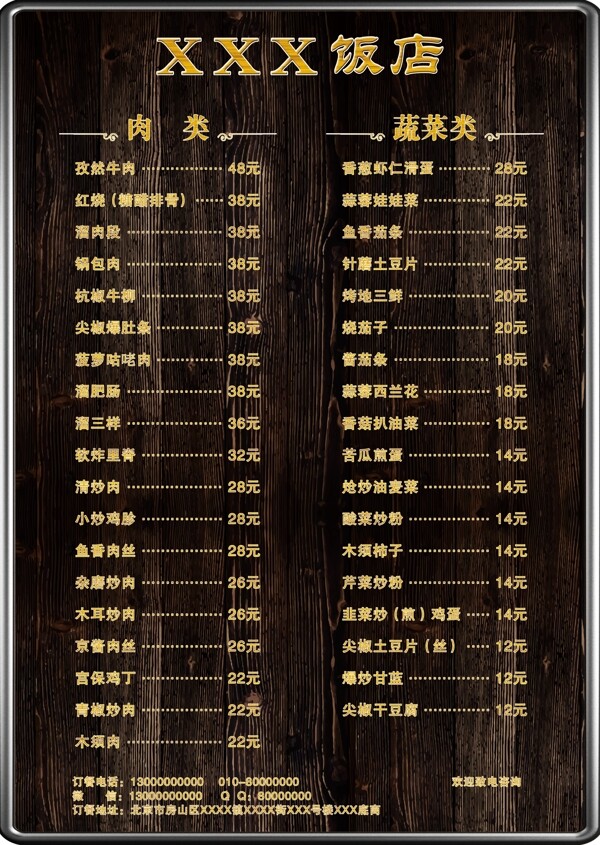 XXX饭店
肉 类
孜然牛肉 48元
红烧（糖醋排骨） 38元
溜肉段 38元
锅包肉 38元
杭椒牛柳 38元
尖椒爆肚条 38元
菠萝咕咾肉 38元
溜肥肠 38元
溜三样 36元
软炸里脊 32元
清炒肉 28元
小炒鸡胗 28元
鱼香肉丝 28元
杂蘑炒肉 26元
木耳炒肉 26元
京酱肉丝 26元
宫保鸡丁 22元
青椒炒肉 22元
木须肉 22元
蔬菜类
香葱虾仁滑蛋 28元
蒜蓉娃娃菜 22元
鱼香茄条 22元
针蘑土豆片 22元
烤地三鲜 20元
烧茄子 20元
酱茄条 18元
蒜蓉西兰花 18元
香菇扒油菜 18元
苦瓜煎蛋 14元
炝炒油麦菜 14元
酸菜炒粉 14元
木须柿子 14元
芹菜炒粉 14元
韭菜炒（煎）鸡蛋 14元
尖椒土豆片（丝） 12元
爆炒甘蓝 12元
尖椒干豆腐 12元
订餐电话：13000000000 010-80000000 欢迎致电咨询
微 信：13000000000 Q Q：60000000
订餐地址：北京市房山区XXXX镇XXXX街XXX号楼XXX底商